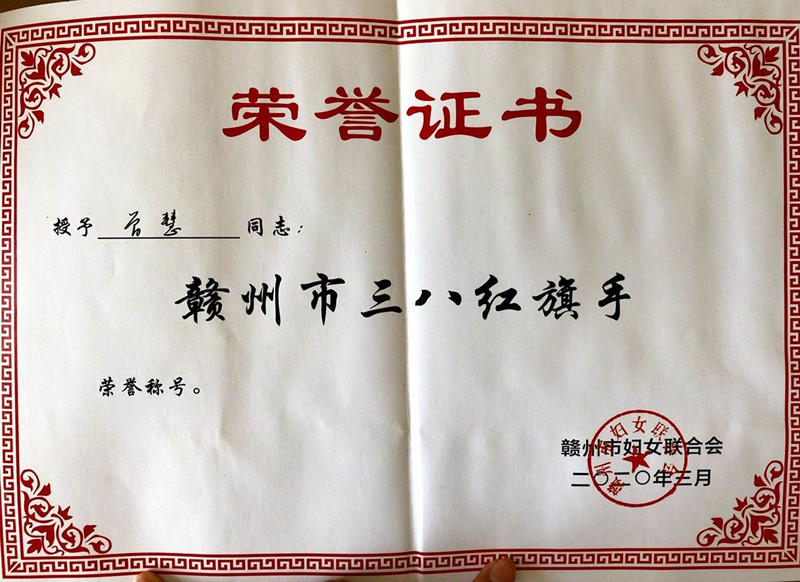 荣誉证书
授予 曾慧 同志：
赣州市三八红旗手
荣誉称号。
赣州市妇女联合会
赣州市妇女联合会
二〇二〇年三月